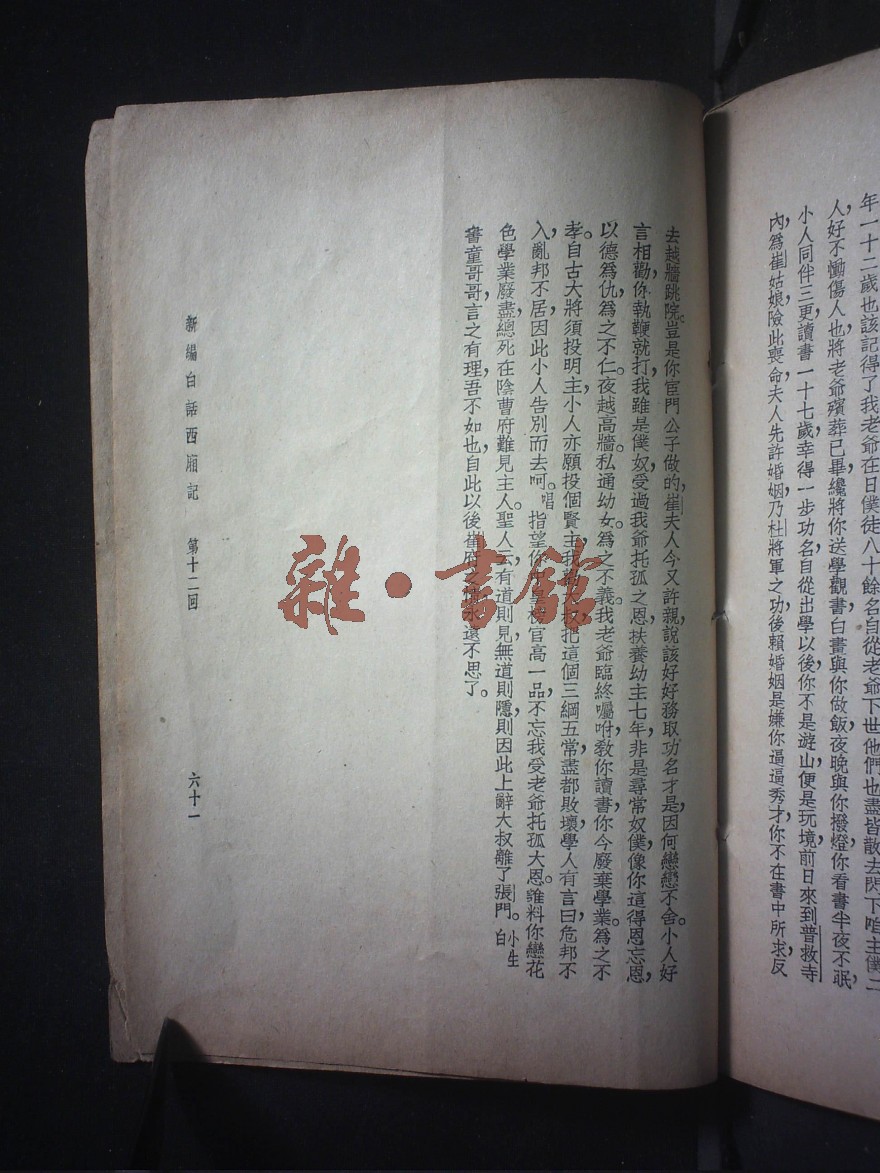 年一十二歲也該記得了我老爺在日僕徒八十餘名自從老爺下世他們也盡皆散去閃下咱主僕二
人，好不慟傷人也，將老爺殯葬已畢，纔將你送學觀書，白晝與你做飯，夜晚與你撥燈，你看書半夜不眠，
小人同伴三更，讀書一十七歲，幸得一步功名，自從出學以後，你不是遊山，便是玩境，前日來到普救寺
內，爲崔姑娘險此喪命，夫人先許婚姻，乃杜將軍之功，後賴婚姻，是嫌你逼逼秀才，你不在書中所求，反
去越牆跳院，豈是你宦門公子做的，崔夫人今又許親，說該好好務取功名才是，因何戀戀不舍。小人好
言相勸，你執鞭就打，我雖是僕奴，受過我爺托孤之恩，扶養幼主七年，非是尋常奴僕，像你這得恩忘恩，
以德爲仇，爲之不仁。夜越高牆，私通幼女，爲之不義。我老爺臨終囑咐，敎你讀書，你今廢棄學業，爲之不
孝。自古大將須投明主，小人亦願投個賢主，我勸大叔，把這個三綱五常，盡都敗壞，學人有言曰，危邦不
入，亂邦不居，因此小人告別而去呵。唱 指望你中皇榜官高一品，不忘我受老爺托孤大恩。誰料你戀花
色學業廢盡，總死在陰曹府難見主人，聖人云，有道則見，無道則隱，則因此上辭大叔離了張門。小生白
書童哥哥，言之有理，吾不如也，自此以後，崔府之情，永遠不思了。
新編白話西廂記 第十二回 六十一
雜·書館